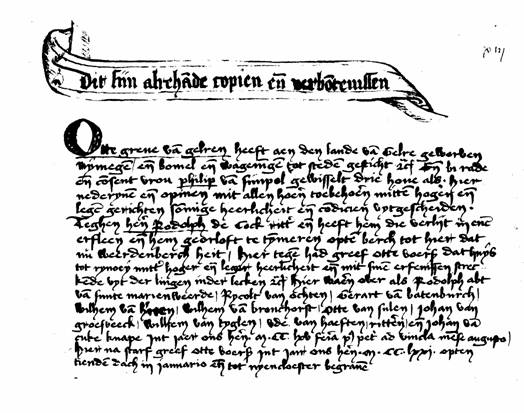 Dit sijn alrehāde copien eñ verbōtenissen
Otte greue vā gelren heeft aen den lande vā Gelre geworuen
nymegē eñ bomel eñ wagenīgē tot stedē gesticht Eñ bi rade
eñ cōsent vrou philip vā simpol gewisselt drie houe als hier
nederynē eñ opinen mit allen hoerē toebehoeñ mittē hogeñ eñ
legē gerichten sōmige heerlicheit eñ cōdicien vytgescheiden
Teghen heñ Rodolph de Cock ritt eñ heeft hem die verlijt eñ
erfleen eñ hem georloft te tymeren opten berch tot hier dat
nu weerdenberch heit / Hier tege had greef otte voers dat huys
tot rynoey mitt hoger eñ leger heerlicheit eñ mit sine erfenissen strec
kēde vyt der lingen inder lecken Hier warē ouer als Rodolph abt
vā sunte marienweerde / Rycolt van ochten / Gerart vā batenburch /
Wilhem vā Wilhem vā bronchorst / Otte van sulen / Johan van
groesbeeck / Wilhem van tyglen / van haeften rittēñ eñ Johan vā
cute knape Int jaer ons heñ M CC lxv feria p' pet ad vincla mēse augusto /
Hier na starf greef otte voers int jaer ons heñ M CC lxxi opten
tienden dach in Januario eñ tot nyencloester begrauē